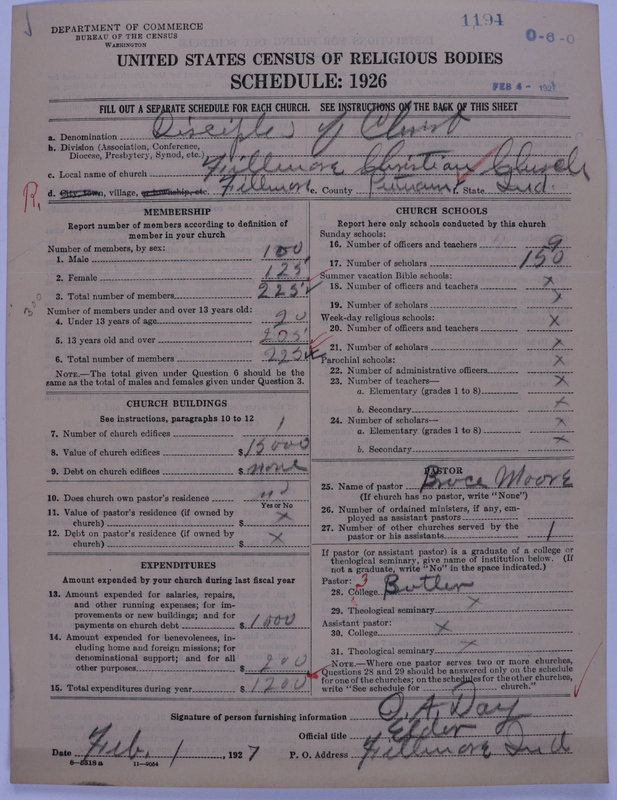 1194
DEPARTMENT OF COMMERCE
BUREAU OF THE CENSUS
WASHINGTON
0-6-0
UNITED STATES CENSUS OF RELIGIOUS BODIES
SCHEDULE: 1926
FEB 4 - 192
FILL OUT A SEPARATE SCHEDULE FOR EACH CHURCH. SEE INSTRUCTIONS ON THE BACK OF THIS SHEET
a. Denomination Disciples of Christ
b. Division (Association, Conference, Diocese, Presbytery, Synod, etc.)
c. Local name of church Fillmore Christian Church
d. City, town, village, or township, etc. Fillmore e. County Putnam f. State Ind.
R.
MEMBERSHIP
Report number of members according to definition of member in your church
Number of members, by sex:
1. Male 100
2. Female 125
3. Total number of members 225
300
Number of members under and over 13 years old:
4. Under 13 years of age 20
5. 13 years old and over 205
6. Total number of members 225
NOTE.—The total given under Question 6 should be the same as the total of males and females given under Question 3.
CHURCH BUILDINGS
See instructions, paragraphs 10 to 12
7. Number of church edifices 1
8. Value of church edifices $15000
9. Debt on church edifices $none
10. Does church own pastor's residence no
Yes or No
11. Value of pastor's residence (if owned by church) $ x
12. Debt on pastor's residence (if owned by church) $ x
EXPENDITURES
Amount expended by your church during last fiscal year
13. Amount expended for salaries, repairs, and other running expenses; for improvements or new buildings; and for payments on church debt $1000
14. Amount expended for benevolences, including home and foreign missions; for denominational support; and for all other purposes $200
15. Total expenditures during year $1200
CHURCH SCHOOLS
Report here only schools conducted by this church
Sunday schools:
16. Number of officers and teachers 9
17. Number of scholars 150
Summer vacation Bible schools:
18. Number of officers and teachers x
19. Number of scholars x
Week-day religious schools:
20. Number of officers and teachers x
21. Number of scholars x
Parochial schools:
22. Number of administrative officers x
23. Number of teachers—
a. Elementary (grades 1 to 8) x
b. Secondary x
24. Number of scholars—
a. Elementary (grades 1 to 8) x
b. Secondary x
PASTOR
25. Name of pastor Bruce Moore
(If church has no pastor, write "None")
26. Number of ordained ministers, if any, employed as assistant pastors
27. Number of other churches served by the pastor or his assistants 1
If pastor (or assistant pastor) is a graduate of a college or theological seminary, give name of institution below. (If not a graduate, write "No" in the space indicated.)
Pastor: 3
28. College Butler
29. Theological seminary x
Assistant pastor:
30. College x
31. Theological seminary x
NOTE.—Where one pastor serves two or more churches, Questions 28 and 29 should be answered only on the schedule for one of the churches; on the schedules for the other churches, write "See schedule for church."
Signature of person furnishing information O. A. Day
Official title Elder
Date Feb. 1, 1927 P. O. Address Fillmore Ind
8-5518a 11-9084